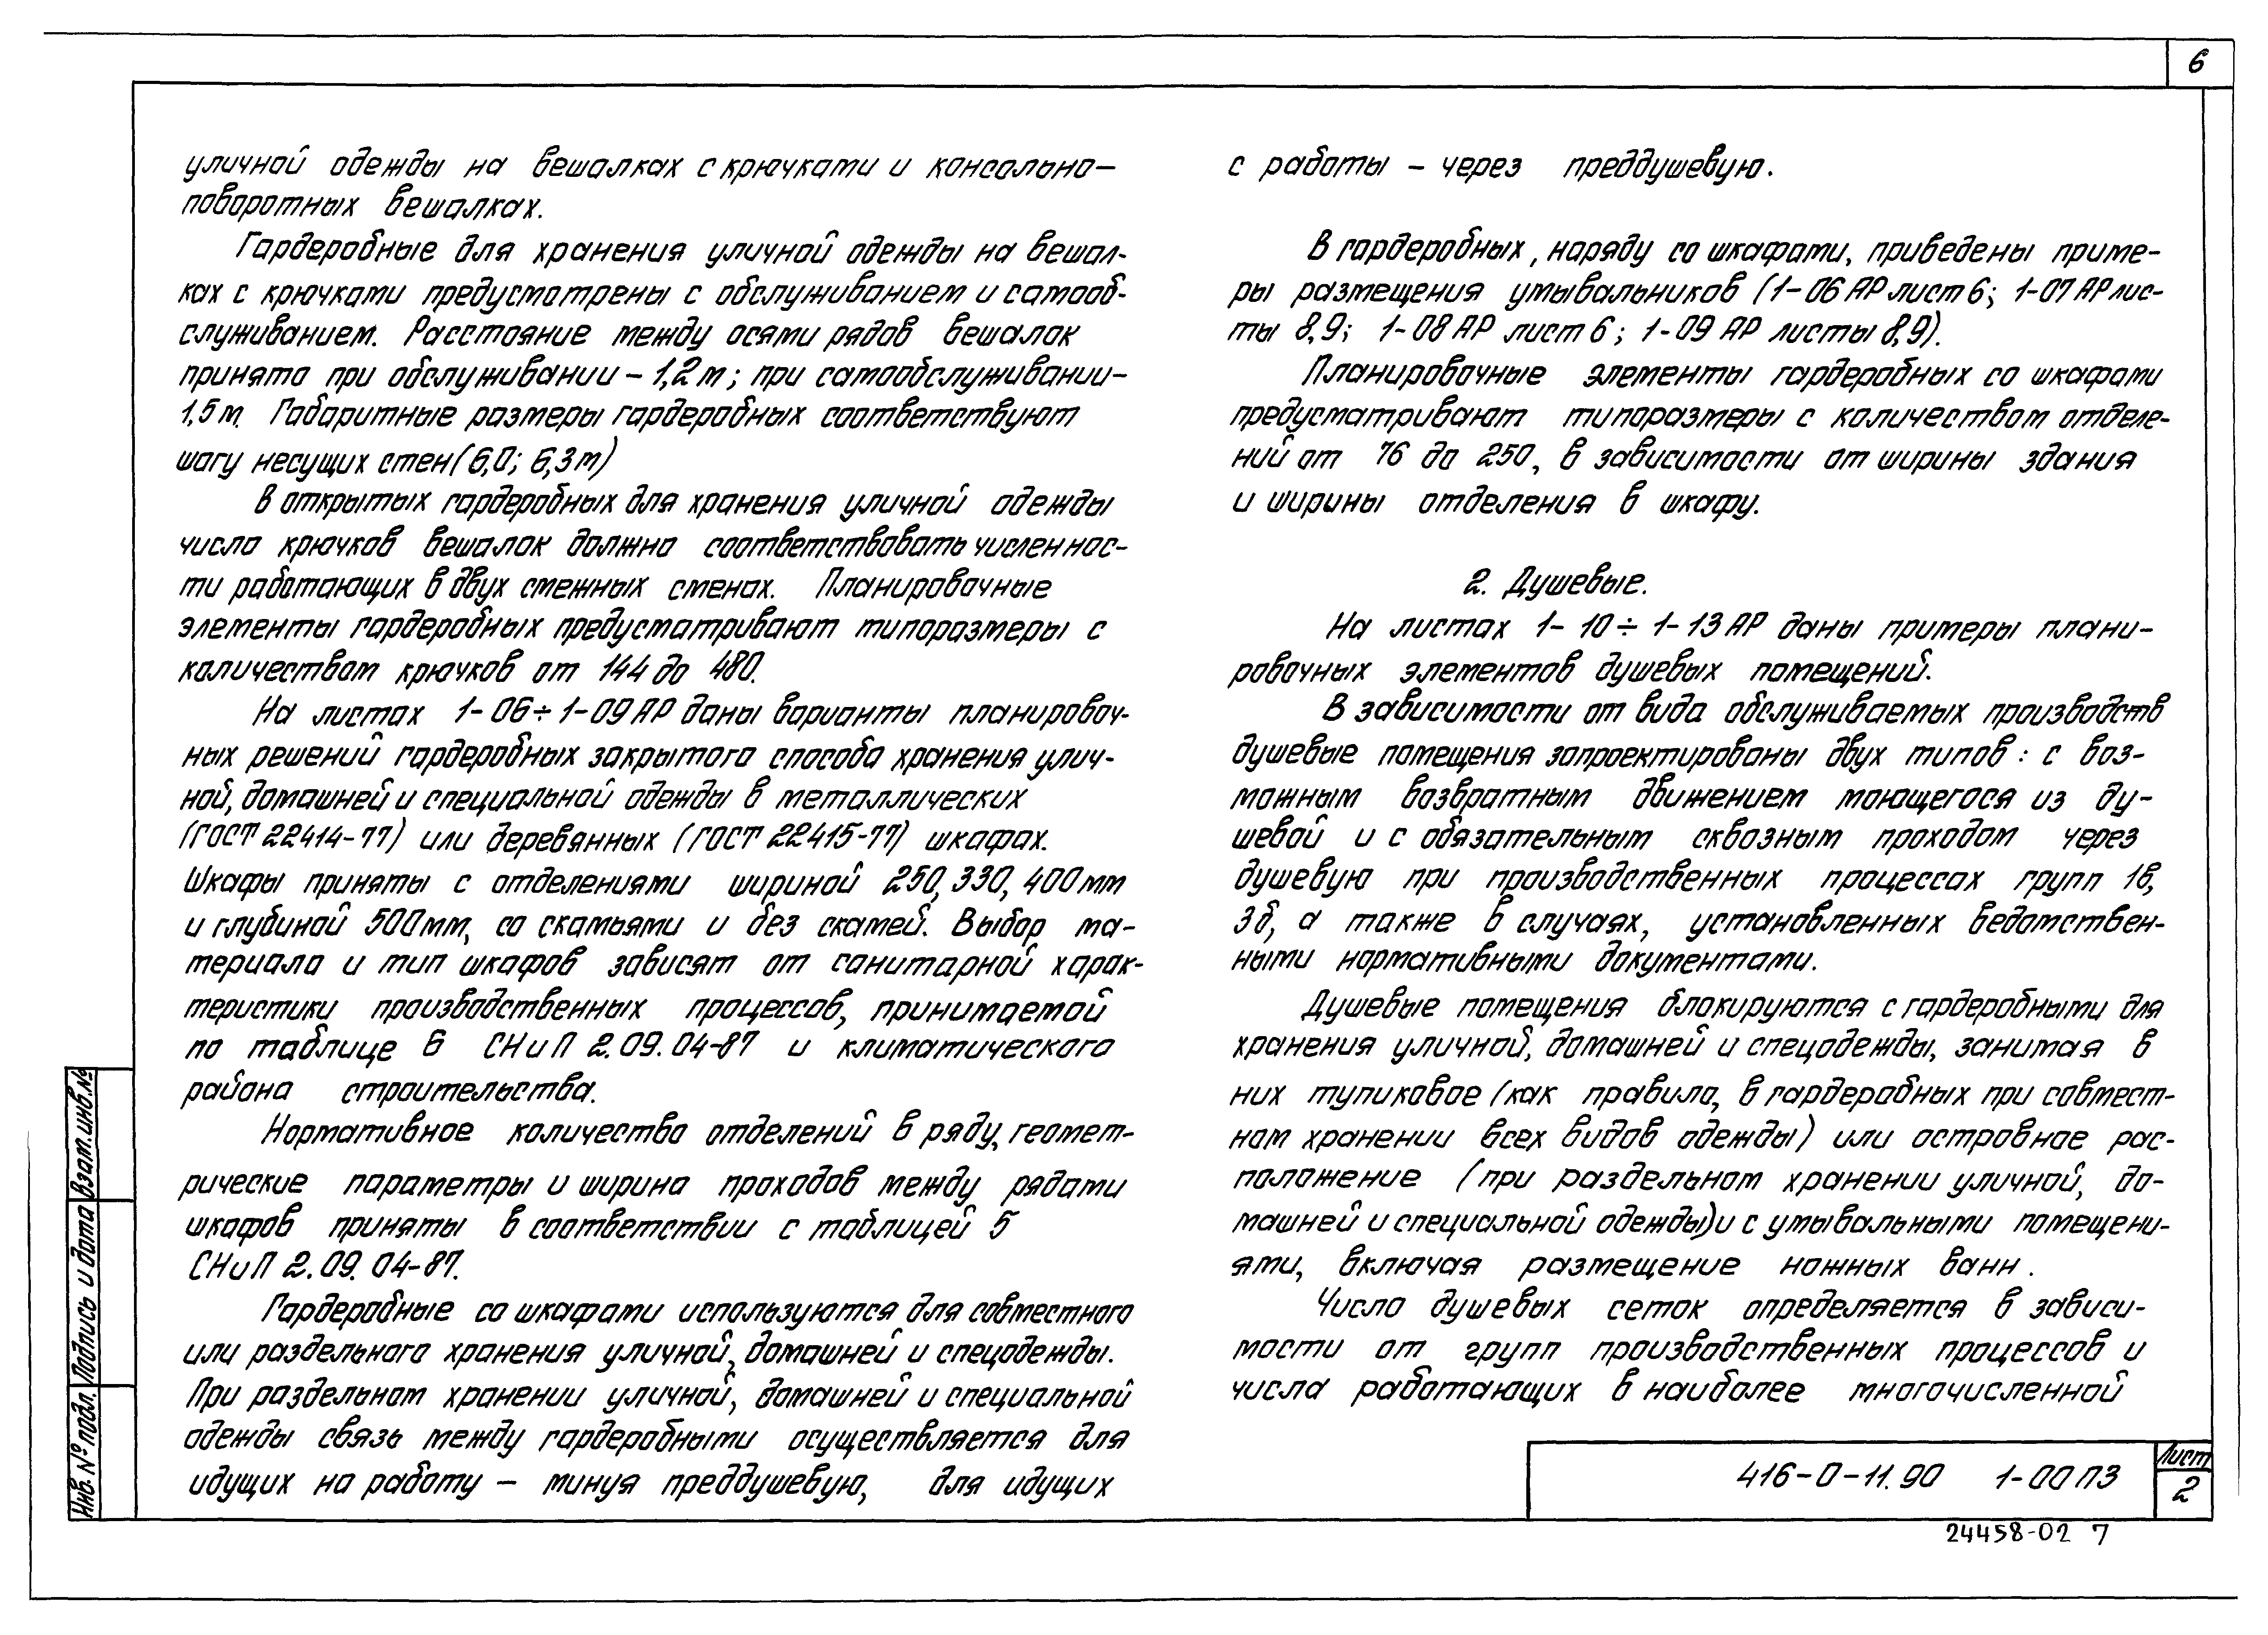 6
уличной одежды на вешалках с крючками и консольно-
поворотных вешалках.
Гардеробные для хранения уличной одежды на вешал-
ках с крючками предусмотрены с обслуживанием и самооб-
служиванием. Расстояние между осями рядов вешалок
принято при обслуживании – 1,2 м; при самообслуживании –
1,5 м. Габаритные размеры гардеробных соответствуют
шагу несущих стен (6,0; 6,3 м)
В открытых гардеробных для хранения уличной одежды
число крючков вешалок должно соответствовать численнос-
ти работающих в двух смежных сменах. Планировочные
элементы гардеробных предусматривают типоразмеры с
количеством крючков от 144 до 480.
На листах 1-06÷1-09 АР даны варианты планировоч-
ных решений гардеробных закрытого способа хранения улич-
ной, домашней и специальной одежды в металлических
(ГОСТ 22414-77) или деревянных (ГОСТ 22415-77) шкафах.
Шкафы приняты с отделениями шириной 250, 330, 400 мм
и глубиной 500 мм, со скамьями и без скамей. Выбор ма-
териала и тип шкафов зависят от санитарной харак-
теристики производственных процессов, принимаемой
по таблице 6 СНиП 2.09.04-87 и климатического
района строительства.
Нормативное количество отделений в ряду, геомет-
рические параметры и ширина проходов между рядами
шкафов приняты в соответствии с таблицей 5
СНиП 2.09.04-87.
Гардеробные со шкафами используются для совместного
или раздельного хранения уличной, домашней и спецодежды.
При раздельном хранении уличной, домашней и специальной
одежды связь между гардеробными осуществляется для
идущих на работу – минуя преддушевую, для идущих
с работы – через преддушевую.
В гардеробных, наряду со шкафами, приведены приме-
ры размещения умывальников (1-06 АР лист 6; 1-07 АР лис-
ты 8,9; 1-08 АР лист 6; 1-09 АР листы 8,9).
Планировочные элементы гардеробных со шкафами
предусматривают типоразмеры с количеством отделе-
ний от 76 до 250, в зависимости от ширины здания
и ширины отделения в шкафу.
2. Душевые.
На листах 1-10÷1-13 АР даны примеры плани-
ровочных элементов душевых помещений.
В зависимости от вида обслуживаемых производств
душевые помещения запроектированы двух типов: с воз-
можным возвратным движением моющегося из ду-
шевой и с обязательным сквозным проходом через
душевую при производственных процессах групп 1в,
3б, а также в случаях, установленных ведомствен-
ными нормативными документами.
Душевые помещения блокируются с гардеробными для
хранения уличной, домашней и спецодежды, занимая в
них тупиковое (как правило, в гардеробных при совмест-
ном хранении всех видов одежды) или островное рас-
положение (при раздельном хранении уличной, до-
машней и специальной одежды) и с умывальными помещени-
ями, включая размещение ножных ванн.
Число душевых сеток определяется в зависи-
мости от групп производственных процессов и
числа работающих в наиболее многочисленной
Взам.инв.№
Подпись и дата
Инв. № подл.
416-0-11.90 1-00 ПЗ
Лист
2
24458-02 7